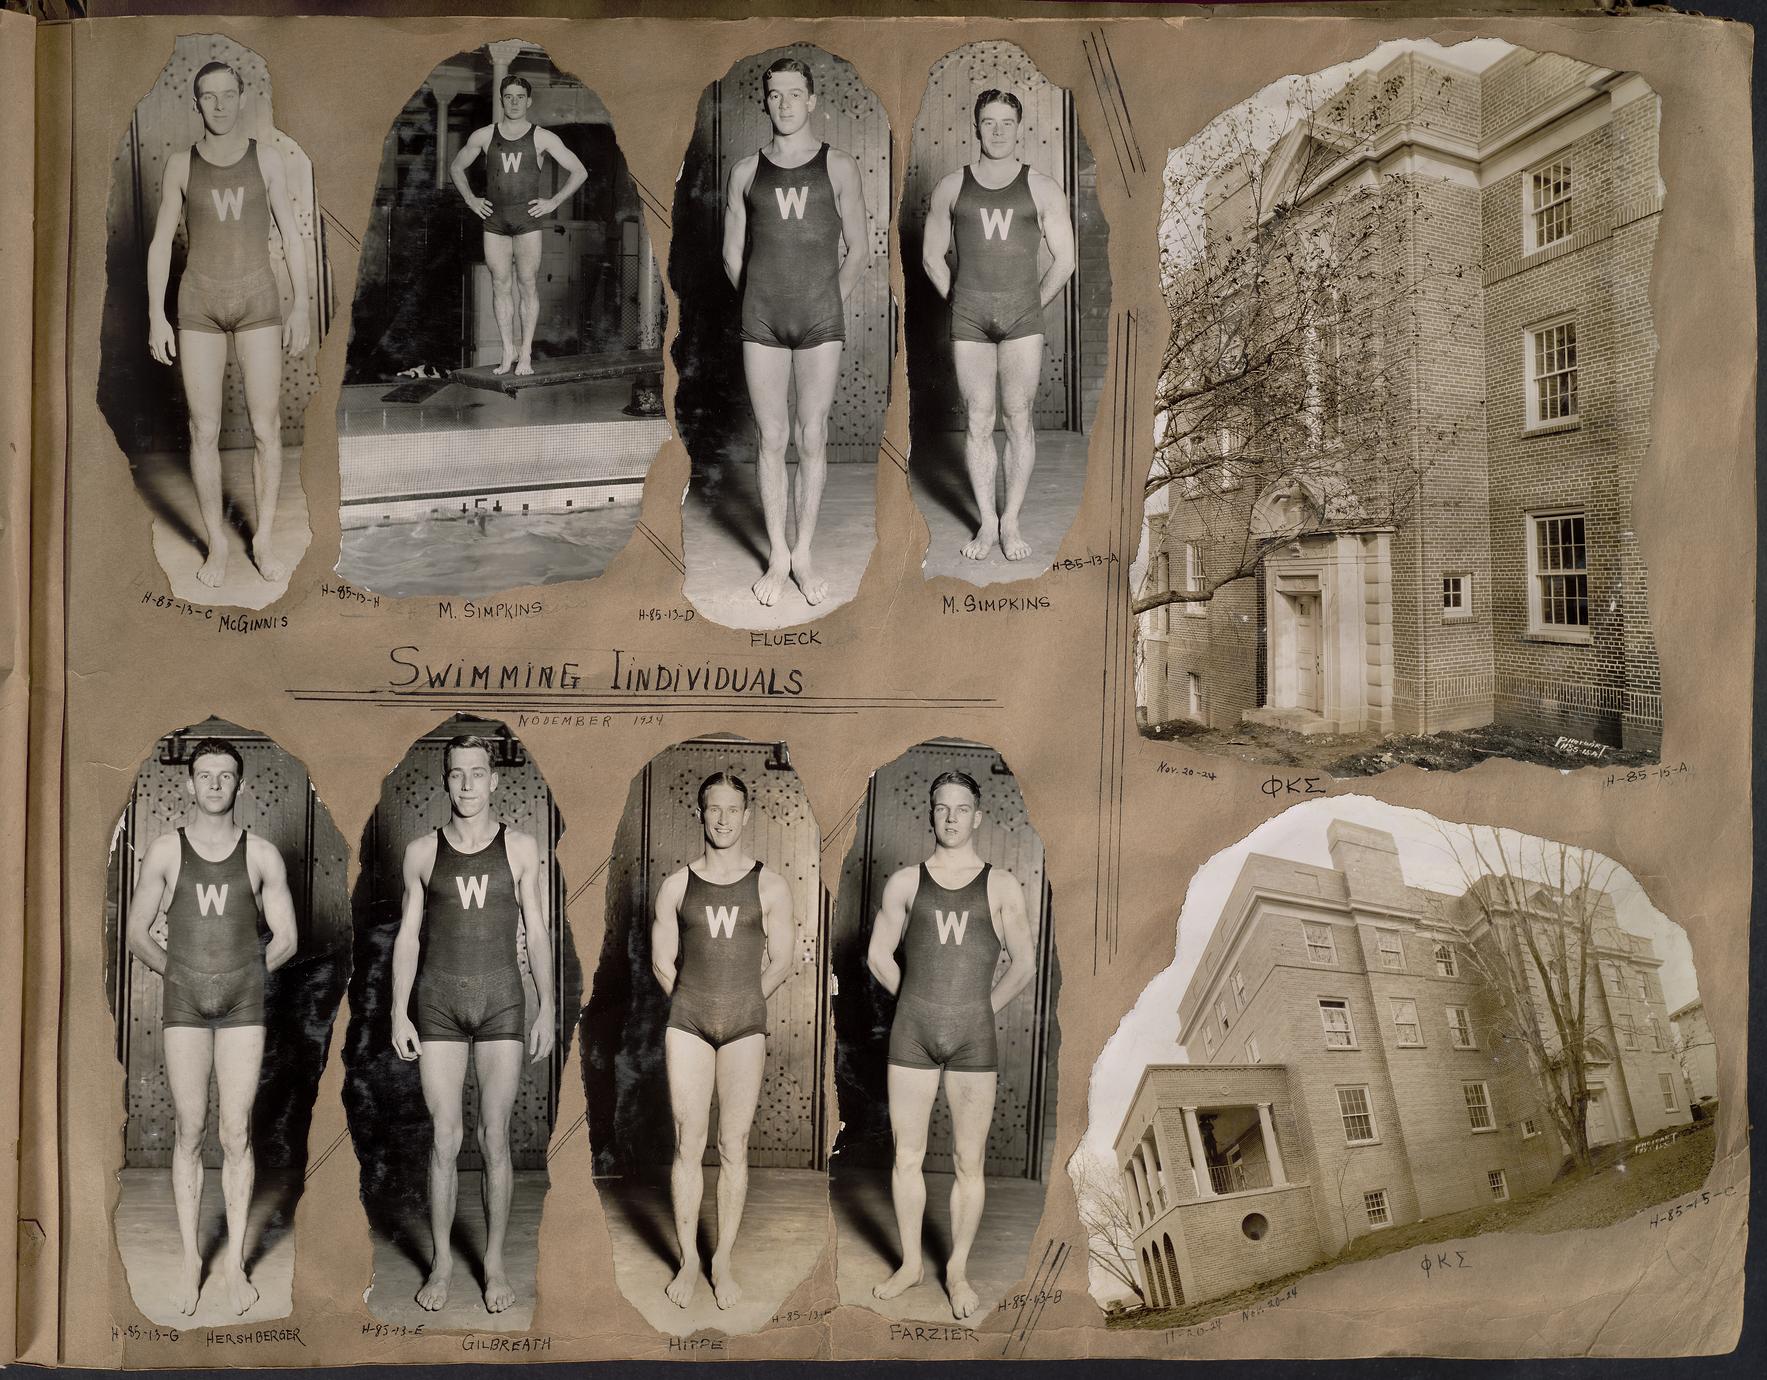 W
W
W
W
15 ft
H-85-13-C
McGINNIS
H-85-13-H
M. SIMPKINS
H-85-13-D
FLUECK
H-85-13-A
M. SIMPKINS
SWIMMING IINDIVIDUALS
NOVEMBER 1924
W
W
W
W
H-85-13-G
HERSHBERGER
H-85-13-E
GILBREATH
H-85-13-F
HIPPE
H-85-13-B
FARZIER
Nov. 20-24
ΦΚΣ
H-85-15-A
H-85-15-C
ΦΚΣ
11-20-24
Nov. 20-24